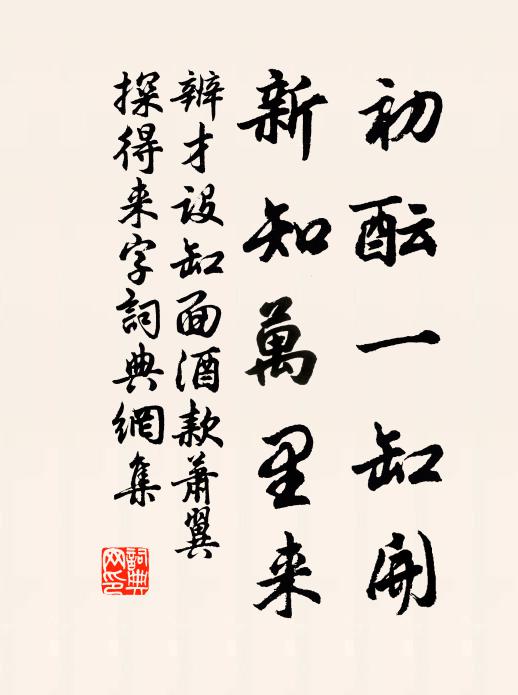 初酝一缸開
新知萬里来
辨才设缸面酒款萧翼
探得来字詞典網集
詞典网印